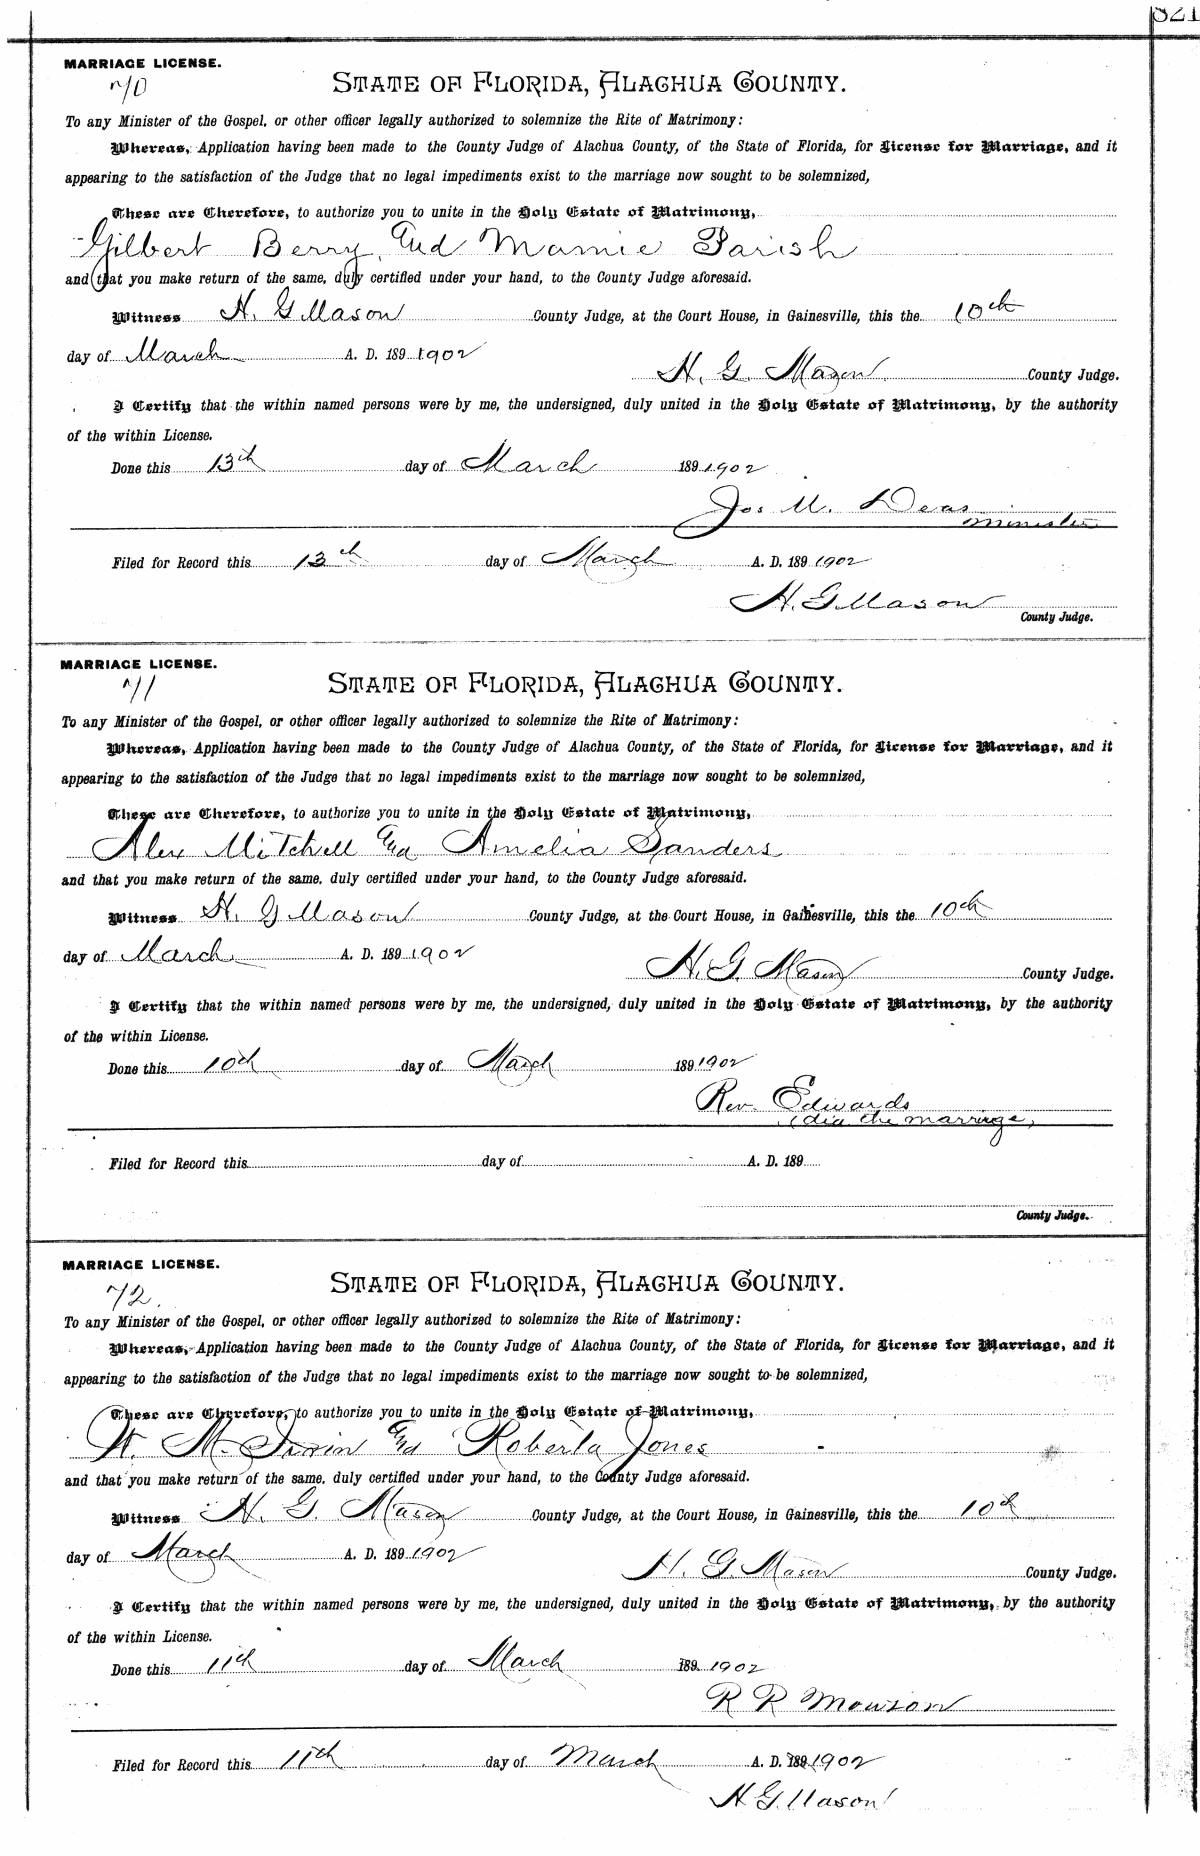 321
MARRIAGE LICENSE.
70
STATE OF FLORIDA, ALACHUA COUNTY.
To any Minister of the Gospel, or other officer legally authorized to solemnize the Rite of Matrimony:
Whereas, Application having been made to the County Judge of Alachua County, of the State of Florida, for License for Marriage, and it
appearing to the satisfaction of the Judge that no legal impediments exist to the marriage now sought to be solemnized,
These are Therefore, to authorize you to unite in the Holy Estate of Matrimony,
Gilbert Berry, and Mamie Parish
and that you make return of the same, duly certified under your hand, to the County Judge aforesaid.
Witness H. G Mason County Judge, at the Court House, in Gainesville, this the 10th
day of March A. D. 189 1902
H. G. Mason County Judge.
I Certify that the within named persons were by me, the undersigned, duly united in the Holy Estate of Matrimony, by the authority
of the within License.
Done this 13th day of March 189 1902
Jos M. Deas
minister
Filed for Record this 13th day of March A. D. 189 1902
H. G Mason
County Judge.
MARRIAGE LICENSE.
71
STATE OF FLORIDA, ALACHUA COUNTY.
To any Minister of the Gospel, or other officer legally authorized to solemnize the Rite of Matrimony:
Whereas, Application having been made to the County Judge of Alachua County, of the State of Florida, for License for Marriage, and it
appearing to the satisfaction of the Judge that no legal impediments exist to the marriage now sought to be solemnized,
These are Therefore, to authorize you to unite in the Holy Estate of Matrimony,
Alex Mitchell and Amelia Sanders
and that you make return of the same, duly certified under your hand, to the County Judge aforesaid.
Witness H. G Mason County Judge, at the Court House, in Gainesville, this the 10th
day of March A. D. 189 1902
H. G. Mason County Judge.
I Certify that the within named persons were by me, the undersigned, duly united in the Holy Estate of Matrimony, by the authority
of the within License.
Done this 10th day of March 189 1902
Rev. Edwards
(did the marriage)
Filed for Record this day of A. D. 189
County Judge.
MARRIAGE LICENSE.
72.
STATE OF FLORIDA, ALACHUA COUNTY.
To any Minister of the Gospel, or other officer legally authorized to solemnize the Rite of Matrimony:
Whereas, Application having been made to the County Judge of Alachua County, of the State of Florida, for License for Marriage, and it
appearing to the satisfaction of the Judge that no legal impediments exist to the marriage now sought to be solemnized,
These are Therefore, to authorize you to unite in the Holy Estate of Matrimony,
W. M. and Roberta Jones
and that you make return of the same, duly certified under your hand, to the County Judge aforesaid.
Witness H. G. Mason County Judge, at the Court House, in Gainesville, this the 10th
day of March A. D. 189 1902
H. G. Mason County Judge.
I Certify that the within named persons were by me, the undersigned, duly united in the Holy Estate of Matrimony, by the authority
of the within License.
Done this 11th day of March 189 1902
R R
Filed for Record this 11th day of March A. D. 189 1902
H G Mason